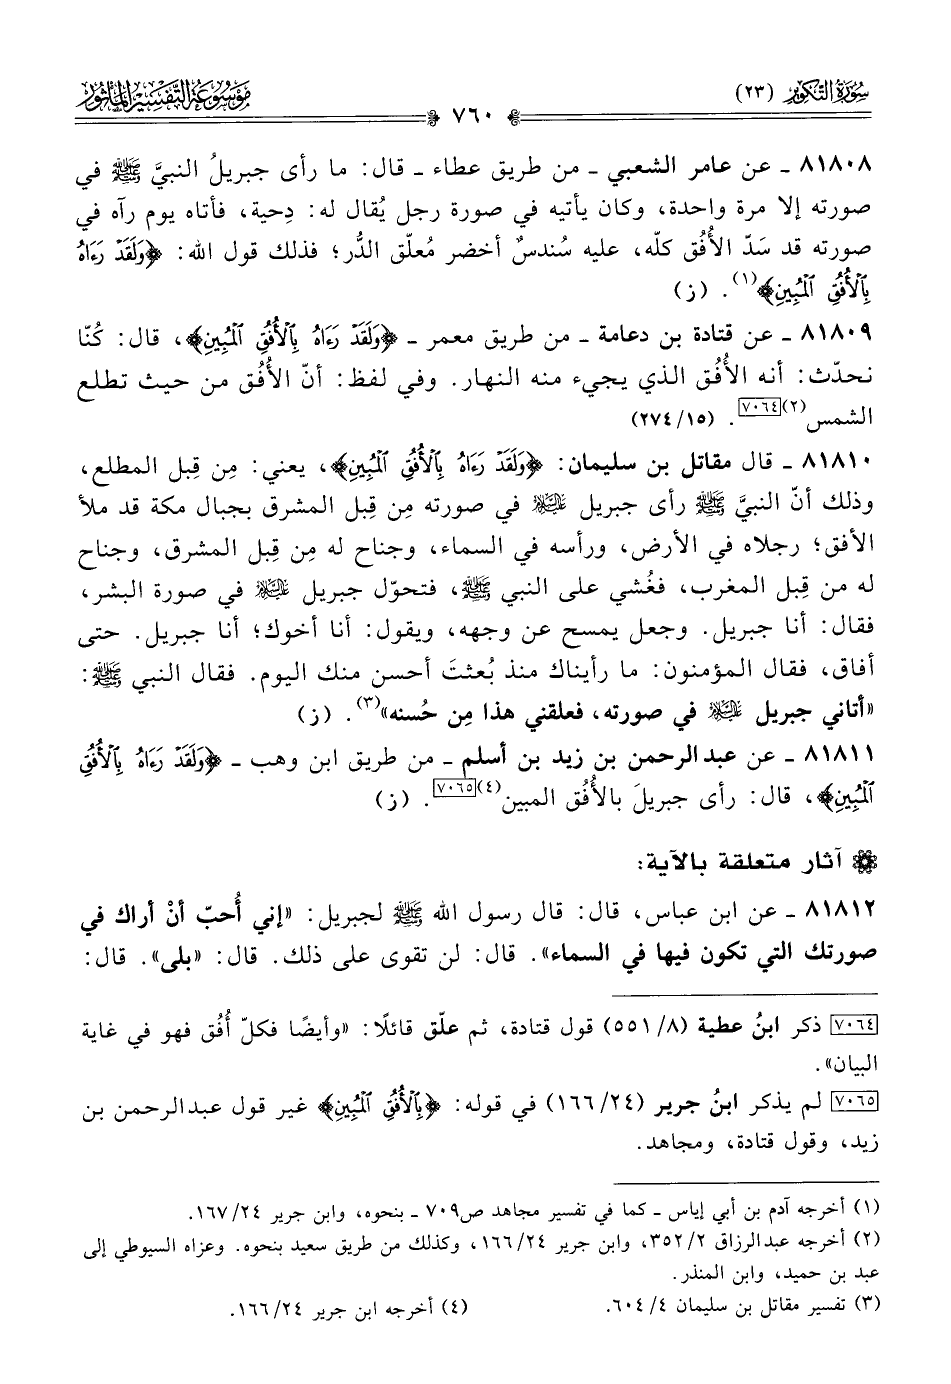 سُورَةُ التَّكْوِير (٢٣)
موسوعة التفسير المأثور
٧٦٠
٨١٨٠٨ ـ عن عامر الشعبي ـ من طريق عطاء ـ قال: ما رأى جبريلُ النبيَّ ﷺ في
صورته إلا مرة واحدة، وكان يأتيه في صورة رجل يُقال له: دِحية، فأتاه يوم رآه في
صورته قد سَدّ الأُفُق كلّه، عليه سُندسٌ أخضر مُعلّق الدُّر؛ فذلك قول الله: ﴿وَلَقَدْ رَءَاهُ
بِٱلْأُفُقِ ٱلْمُبِينِ﴾(١). (ز)
٨١٨٠٩ ـ عن قتادة بن دعامة ـ من طريق معمر ـ ﴿وَلَقَدْ رَءَاهُ بِٱلْأُفُقِ ٱلْمُبِينِ﴾، قال: كُنّا
نحدّث: أنه الأُفُق الذي يجيء منه النهار. وفي لفظ: أنّ الأُفُق من حيث تطلع
الشمس(٢)[٧٠٦٤]. (٢٧٤/١٥)
٨١٨١٠ ـ قال مقاتل بن سليمان: ﴿وَلَقَدْ رَءَاهُ بِٱلْأُفُقِ ٱلْمُبِينِ﴾، يعني: مِن قِبل المطلع،
وذلك أنّ النبيَّ ﷺ رأى جبريل عليه السلام في صورته مِن قِبل المشرق بجبال مكة قد ملأ
الأفق؛ رجلاه في الأرض، ورأسه في السماء، وجناح له مِن قِبل المشرق، وجناح
له من قِبل المغرب، فغُشي على النبي ﷺ، فتحوّل جبريل عليه السلام في صورة البشر،
فقال: أنا جبريل. وجعل يمسح عن وجهه، ويقول: أنا أخوك؛ أنا جبريل. حتى
أفاق، فقال المؤمنون: ما رأيناك منذ بُعثتَ أحسن منك اليوم. فقال النبي ﷺ:
«أتاني جبريل عليه السلام في صورته، فعلقني هذا مِن حُسنه»(٣). (ز)
٨١٨١١ ـ عن عبدالرحمن بن زيد بن أسلم ـ من طريق ابن وهب ـ ﴿وَلَقَدْ رَءَاهُ بِٱلْأُفُقِ
ٱلْمُبِينِ﴾، قال: رأى جبريلَ بالأُفُق المبين(٤)[٧٠٦٥]. (ز)
آثار متعلقة بالآية:
٨١٨١٢ ـ عن ابن عباس، قال: قال رسول الله ﷺ لجبريل: «إني أُحبّ أنْ أراك في
صورتك التي تكون فيها في السماء». قال: لن تقوى على ذلك. قال: «بلى». قال:
[٧٠٦٤] ذكر ابنُ عطية (٨/ ٥٥١) قول قتادة، ثم علّق قائلًا: «وأيضًا فكلّ أُفُق فهو في غاية
البيان».
[٧٠٦٥] لم يذكر ابنُ جرير (١٦٦/٢٤) في قوله: ﴿بِٱلْأُفُقِ ٱلْمُبِينِ﴾ غير قول عبدالرحمن بن
زيد، وقول قتادة، ومجاهد.
(١) أخرجه آدم بن أبي إياس ـ كما في تفسير مجاهد ص٧٠٩ ـ بنحوه، وابن جرير ١٦٧/٢٤.
(٢) أخرجه عبدالرزاق ٣٥٢/٢، وابن جرير ١٦٦/٢٤، وكذلك من طريق سعيد بنحوه. وعزاه السيوطي إلى
عبد بن حميد، وابن المنذر.
(٣) تفسير مقاتل بن سليمان ٦٠٤/٤. (٤) أخرجه ابن جرير ١٦٦/٢٤.